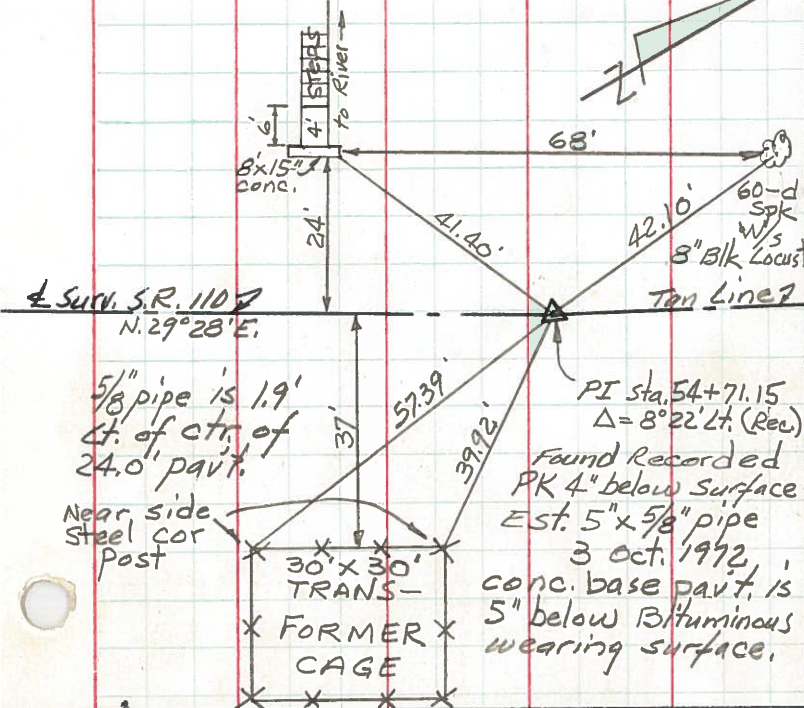 STEPS
to River
6'
4'
N
68'
8"x15"
conc.
24'
41.40'
42.10'
60-d
Spk
W/s
8" Blk Locust
℄ Surv. S.R. 110
N. 29°28'E.
Tan Line
5/8" pipe is 1.9'
Lt. of ctr. of
24.0' pav't.
37'
57.39'
39.92'
PI sta. 54+71.15
Δ = 8°22' Lt. (Rec.)
Found Recorded
PK 4" below surface
Est. 5" x 5/8" pipe
3 Oct. 1972
conc. base pav't. is
5" below Bituminous
wearing surface.
Near side
Steel cor
Post
30' X 30'
TRANS-
FORMER
CAGE